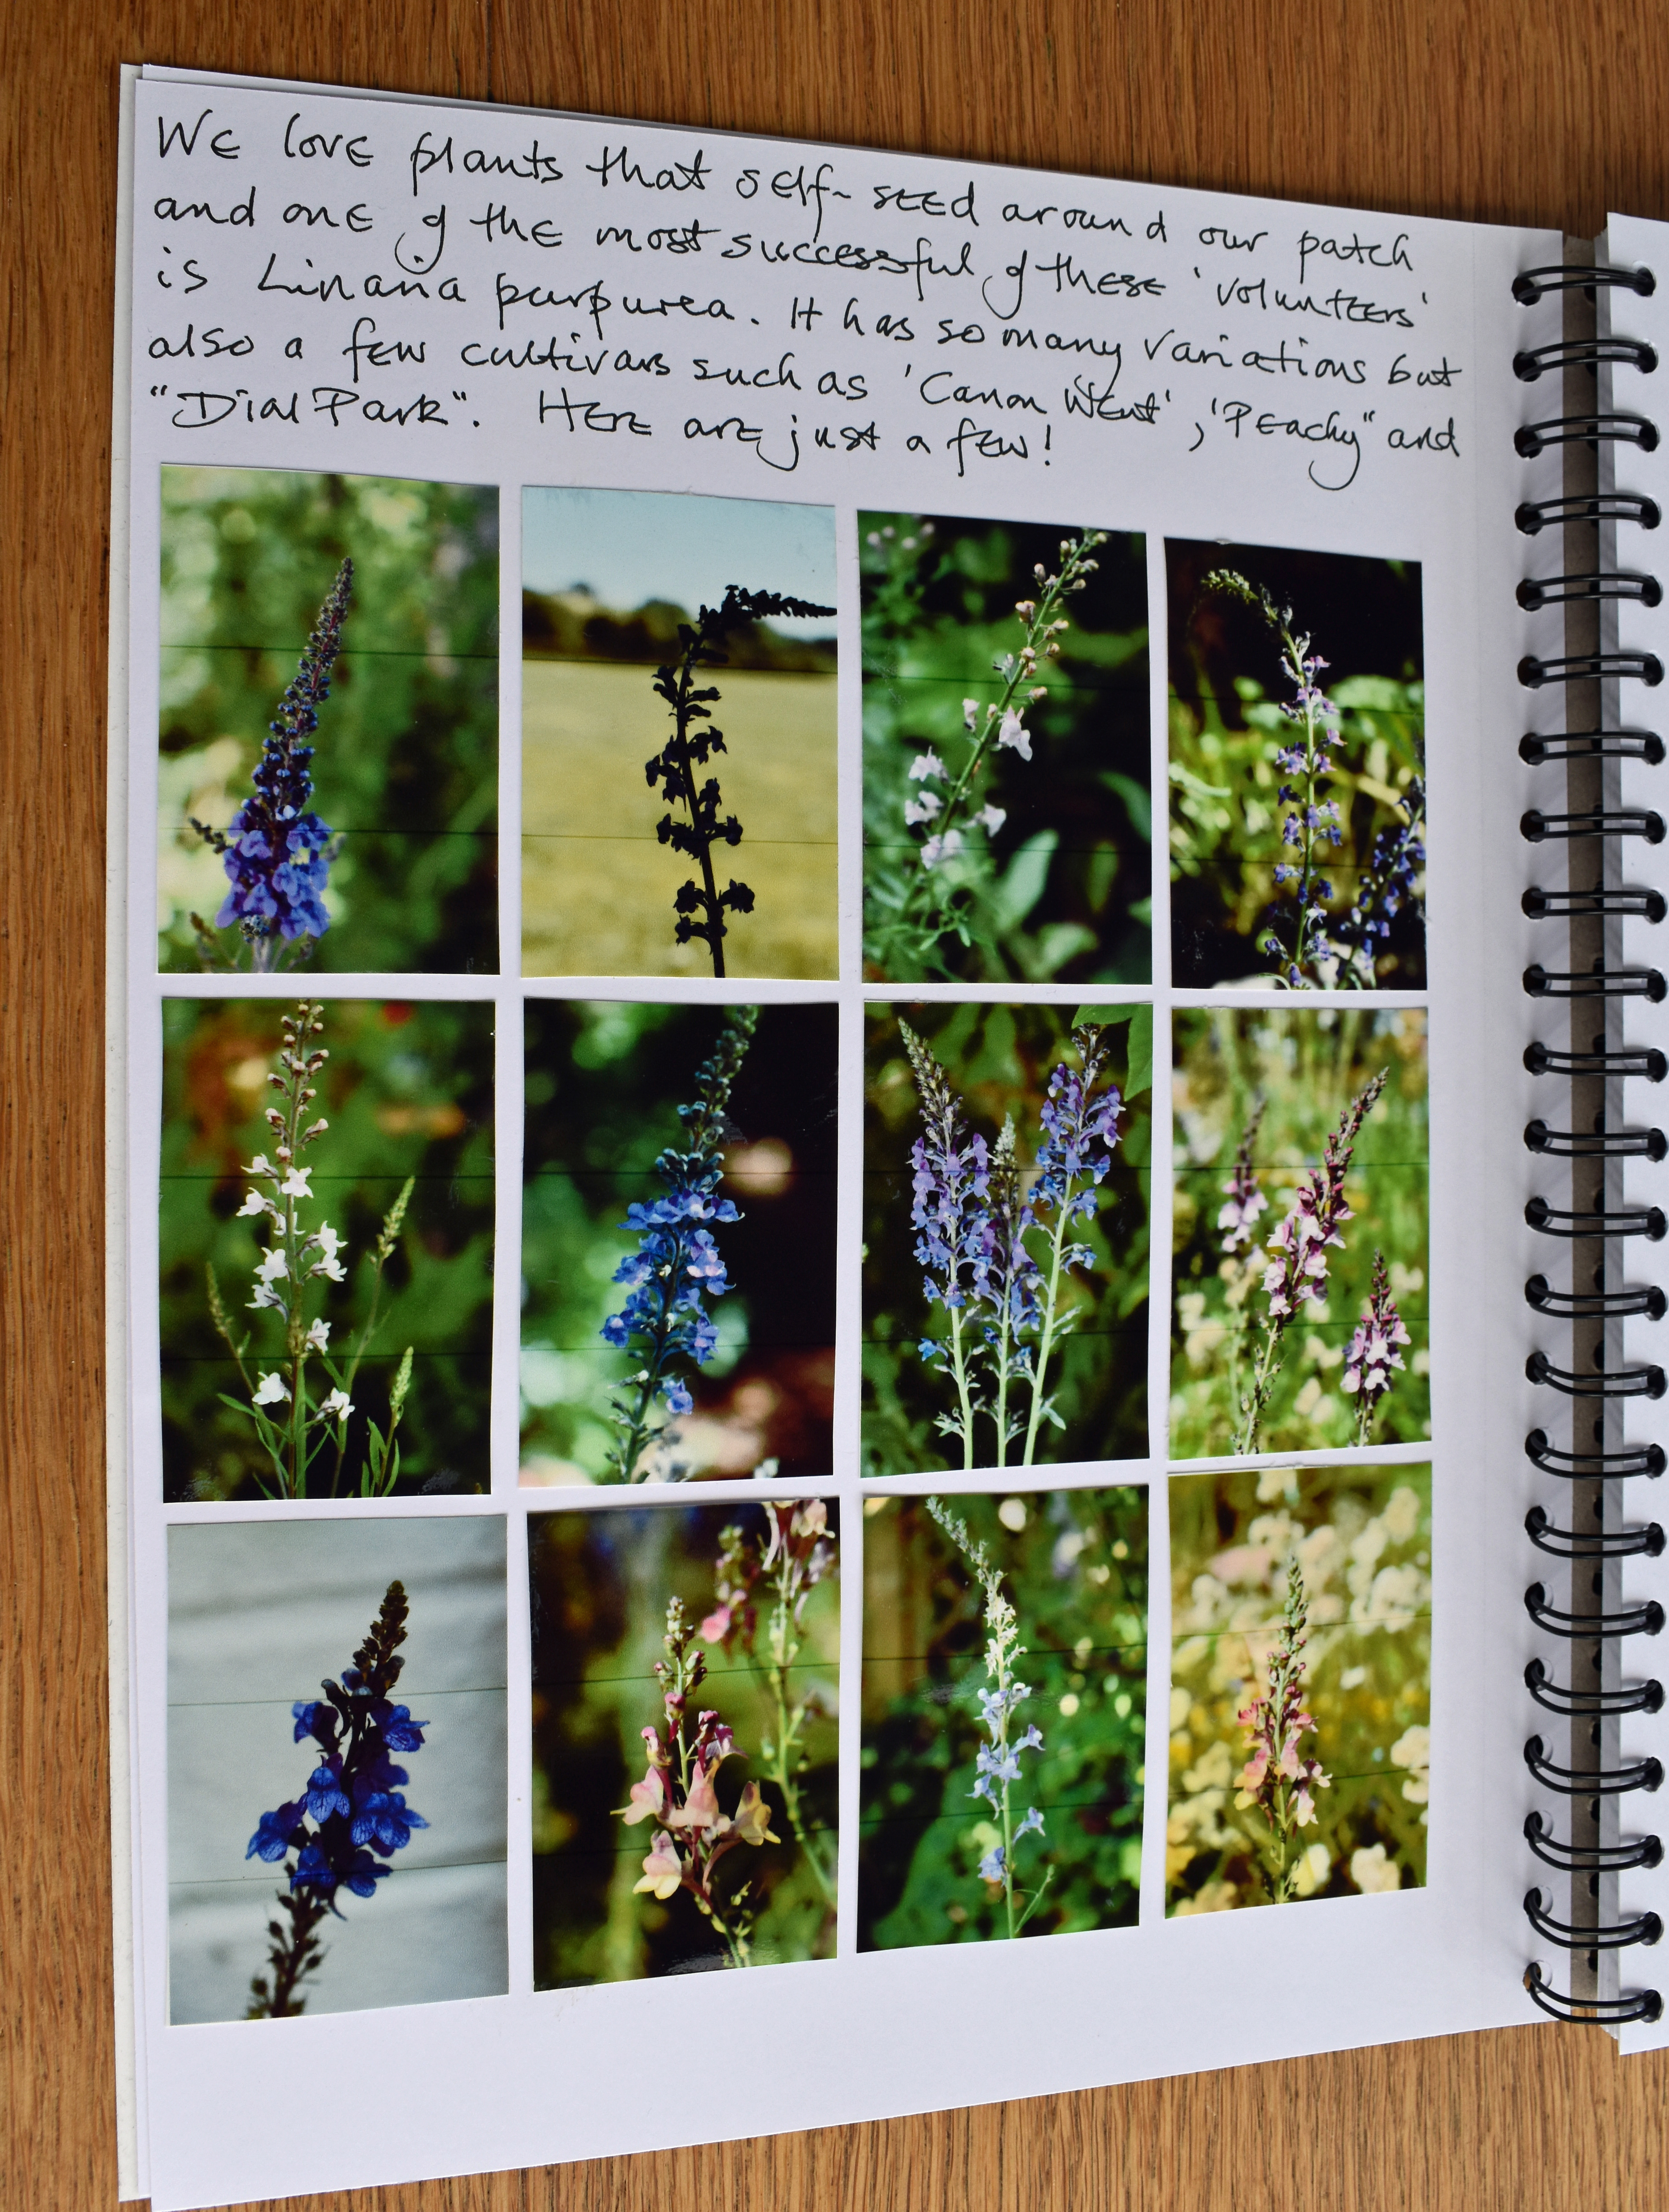 We love plants that self-seed around our patch
and one of the most successful of these 'volunteers'
is Linaria purpurea. It has so many variations but
also a few cultivars such as 'Canon Went', 'Peachy" and
"Dial Park". Here are just a few!